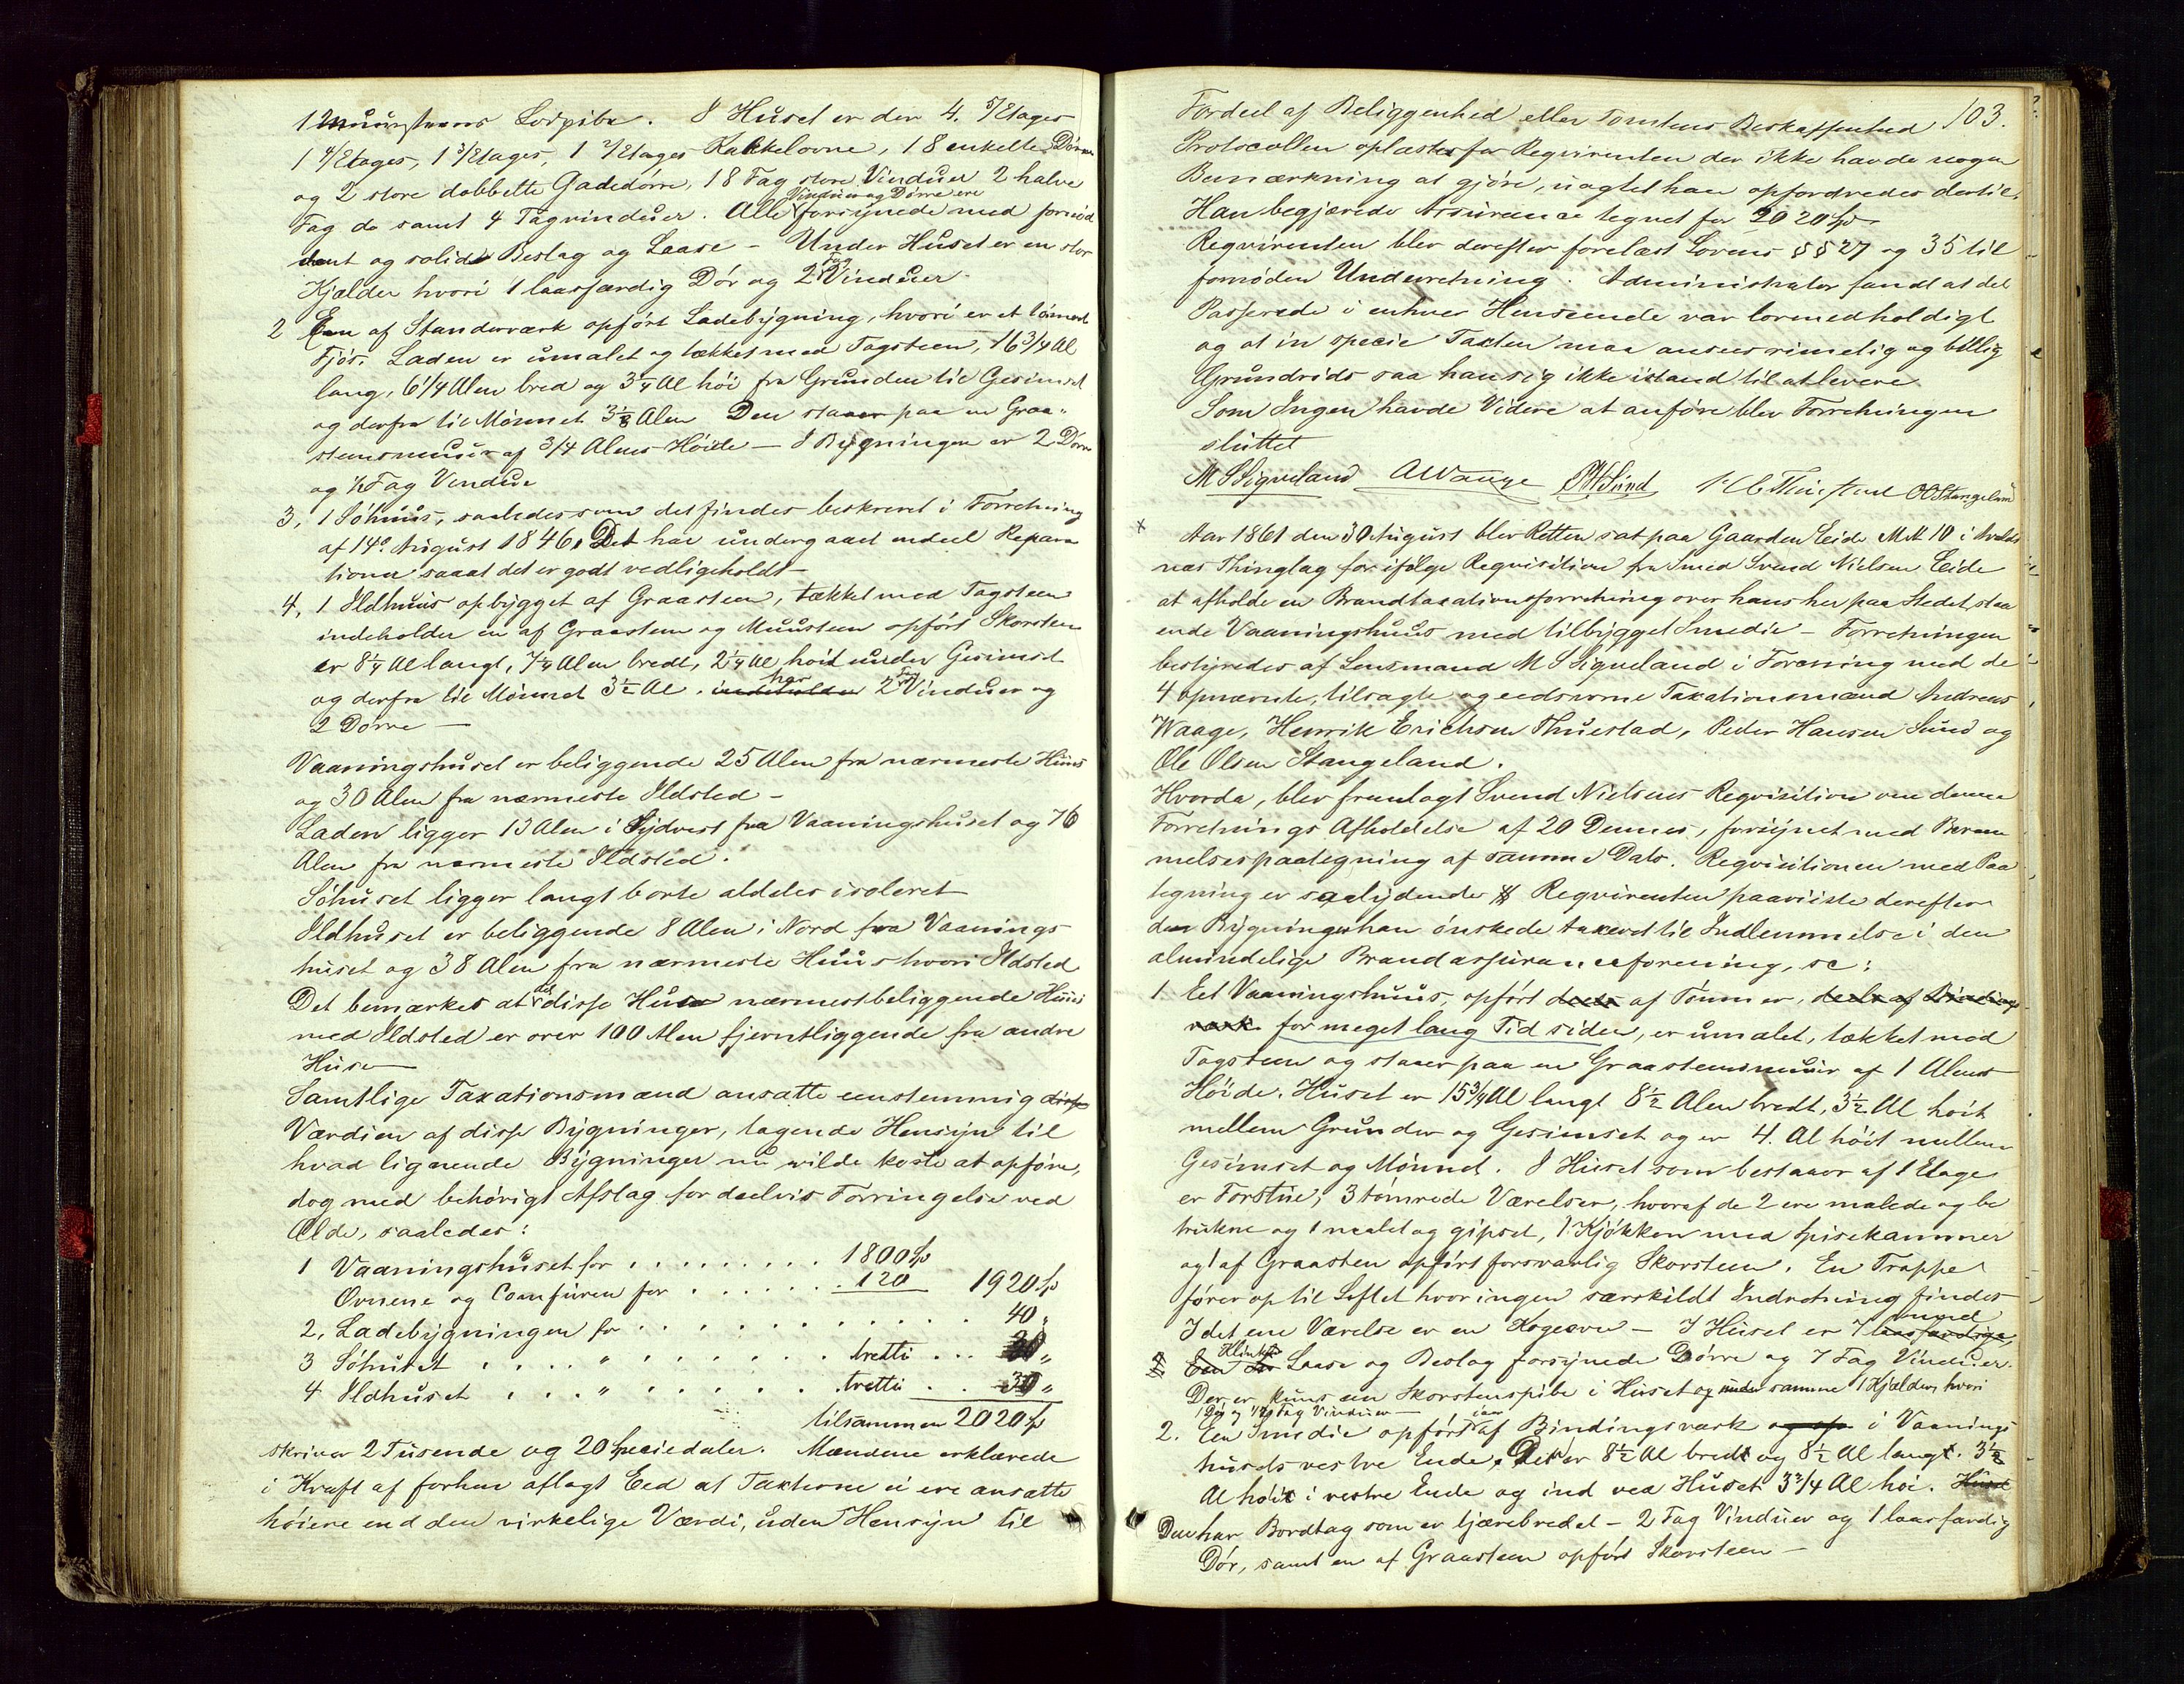 1 Muursteens Lodpibe. I Huset er der 4. 5/Etages
1 4/Etages, 1 3/Etages, 1 2/Etages Kakkelovne, 18 enkelte Dörre
og 2 store dobbelte Gadedörre, 18 Fag store Vinduer 2 halve
Vinduer og Dörre ere
Fag do samt 4 Tagvinduer. Alle forsynede med fornöd
dent og solide Beslag og Laase - Under Huset er en stor
Kjælder hvori 1 laasfærdig Dör og 2 Fag Vinduer
2 Een af Standerværk opfört Ladebygning, hvori er et tömret
Fjös. Laden er umalet og tækket med Tagsteen, 16 3/4 Al
lang, 6 1/4 Alen bred og 3 1/4 Al höi fra Grunden til Gesimset
og derfra til Mönnet 3 1/8 Alen Den staaer paa en Graa-
steensmuur af 3/4 Alens Höide - I Bygningen er 2 Dörre
og 1/2 Fag Vindue
3, 1 Söhuus, saaledes som det findes beskrevet i Forretning
af 14de August 1846. Det har undergaaet endeel Repara
tioner saaat det er godt vedligeholdt -
4, 1 Ildhuus opbygget af Graasteen, tækket med Tagsteen
indeholder en af Graasteen og Muursteen opfört Skorsteen
er 8 1/4 Al langt, 7 1/4 Alen bredt, 2 1/4 Al höit under Gesimset
og derfra til Mönnet 3 1/2 Al. indeholder har 2 Fag Vinduer og
2 Dörre -
Vaaningshuset er beliggende 25 Alen fra nærmeste Huus
og 30 Alen fra nærmeste Ildsted -
Laden ligger 13 Alen i Sydvest fra Vaaningshuset og 76
Alen fra nærmeste Ildsted.
Söhuset ligger langt borte aldeles isoleret
Ildhuset er beliggende 8 Alen i Nord fra Vaanings
huset og 38 Alen fra nærmeste Huus hvori Ildsted
Det bemærkes at det disse Huse nærmestbeliggende Huus
med Ildsted er over 100 Alen fjerntliggende fra andre
Huse
Samtlige Taxationsmænd ansatte eenstemmig disse
Værdien af disse Bygninger, tagende Hensyn til
hvad lignende Bygninger nu vilde koste at opföre,
dog med behörigt Afslag for deelvis Forringelse ved
Ælde, saaledes:
1 Vaaningshuset for . . . . . . . . . 1800 Sp
Ovnene og Comfuren for . . . . . . 120 1920 Sp
2, Ladebygningen for . . . . . . . . . . . . 40 "
3 Söhuset . . . . " . . . . . . . tretti . . . 30 "
4 Ildhuset . . . . " . . . . . . . tretti . . 30 "
tilsammen 2020 Sp
skriver 2 Tusende og 20 Speciedaler. Mændene erklærede
i Kraft af forhen aflagt Eed at Taxterne ei ere ansatte
höiere end den virkelige Værdi, uden Hensyn til
103.
Fordeel af Beliggenhed eller Tomtens Beskaffenhed
Protocollen oplæstes for Reqvirenten der ikke havde nogen
Bemærkning at gjöre, uagtet han opfordredes dertil.
Han begjærede Assurance tegnet for 2020 Sp
Reqvirenten blev derefter forelæst Lovens §§ 27 og 35 til
fornöden Underretning. Administrator fandt at det
Passerede i enhver Henseende var lovmedholdigt
og at in specie Taxten maa ansees rimelig og billig
Grundrids saa han sig ikke istand til at levere
Som Ingen havde Videre at anföre blev Forretningen
sluttet
M S Siqveland A Waage P H Sund H E Thuestad O O Stangeland
x Aar 1861 den 30 August blev Retten sat paa Gaarden Eide M No 10 i Avalds
næs Thinglag for ifölge Reqvisition fra Smed Svend Nielsen Eide
at afholde en Brandtaxationsforretning over hans her paa Stedet staa
ende Vaaningshuus med tilbygget Smedie - Forretningen
bestyredes af Lensmand M S Siqveland i Forening med de
4 opnævnte, tilsagte og eedsvorne Taxationsmænd Andreas
Waage, Henrik Erichsen Thuestad, Peder Hansen Sund og
Ole Olsen Stangeland.
Hvorda, blev fremlagt Svend Nielsens Reqvisition om denne
Forretnings Afholdelse af 20 Dennes, forsynet med Beram
melsespaategning af samme Dato. Reqvisitionen med Paa
tegning er saalydende § Reqvirenten paaviiste derefter
den Bygninger han önskede taxeret til Indlemmelse i den
almindelige Brandassuranceforening, sc:
1 Eet Vaaningshuus, opfört deels af Tömmer, deels af Bindings
værk for meget lang Tid siden, er umalet, tækket med
Tagsteen og staaer paa en Graasteensmuur af 1 Alens
Höide. Huset er 15 3/4 Al langt 8 1/2 Alen bredt, 3 1/2 Al höit
mellem Grunden og Gesimset og er 4. Al höit mellem
Gesimset og Mönnet. I Huset som bestaaer af 1 Etage
er Forstue, 3 tömrede Værelser, hvoraf de 2 ere malede og be
trukne og 1 malet og gipset, 1 Kjökken med Spisekammer
og 1 af Graasten opfört forsvarlig Skorsteen. En Trappe
förer op til Loftet hvor ingen særskildt Indretning findes
I det ene Værelse er en Kogeovn - I Huset er 7 laasfærdige, med
2 Een Sm Klinker Laase og Beslag forsynede Dörre og 7 Fag Vinduer.
Der er kuns en Skorstenspibe i Huset og under samme 1 Kjælder, hvori
1 Dör og 1/2 Fag Vinduer
2. En Smedie opfört af Bindingsværk og op i Vaanings
husets vestre Ende. Den er 8 1/2 Al bredt og 8 1/2 Al langt. 3 1/2
Al höit i vestre Ende og ind ved Huset 3 3/4 Al höi. Huset
Den har Bordtag som er tjærebredet - 2 Fag Vinduer og 1 laasfærdig
Dör, samt en af Graasteen opfört Skorsteen -